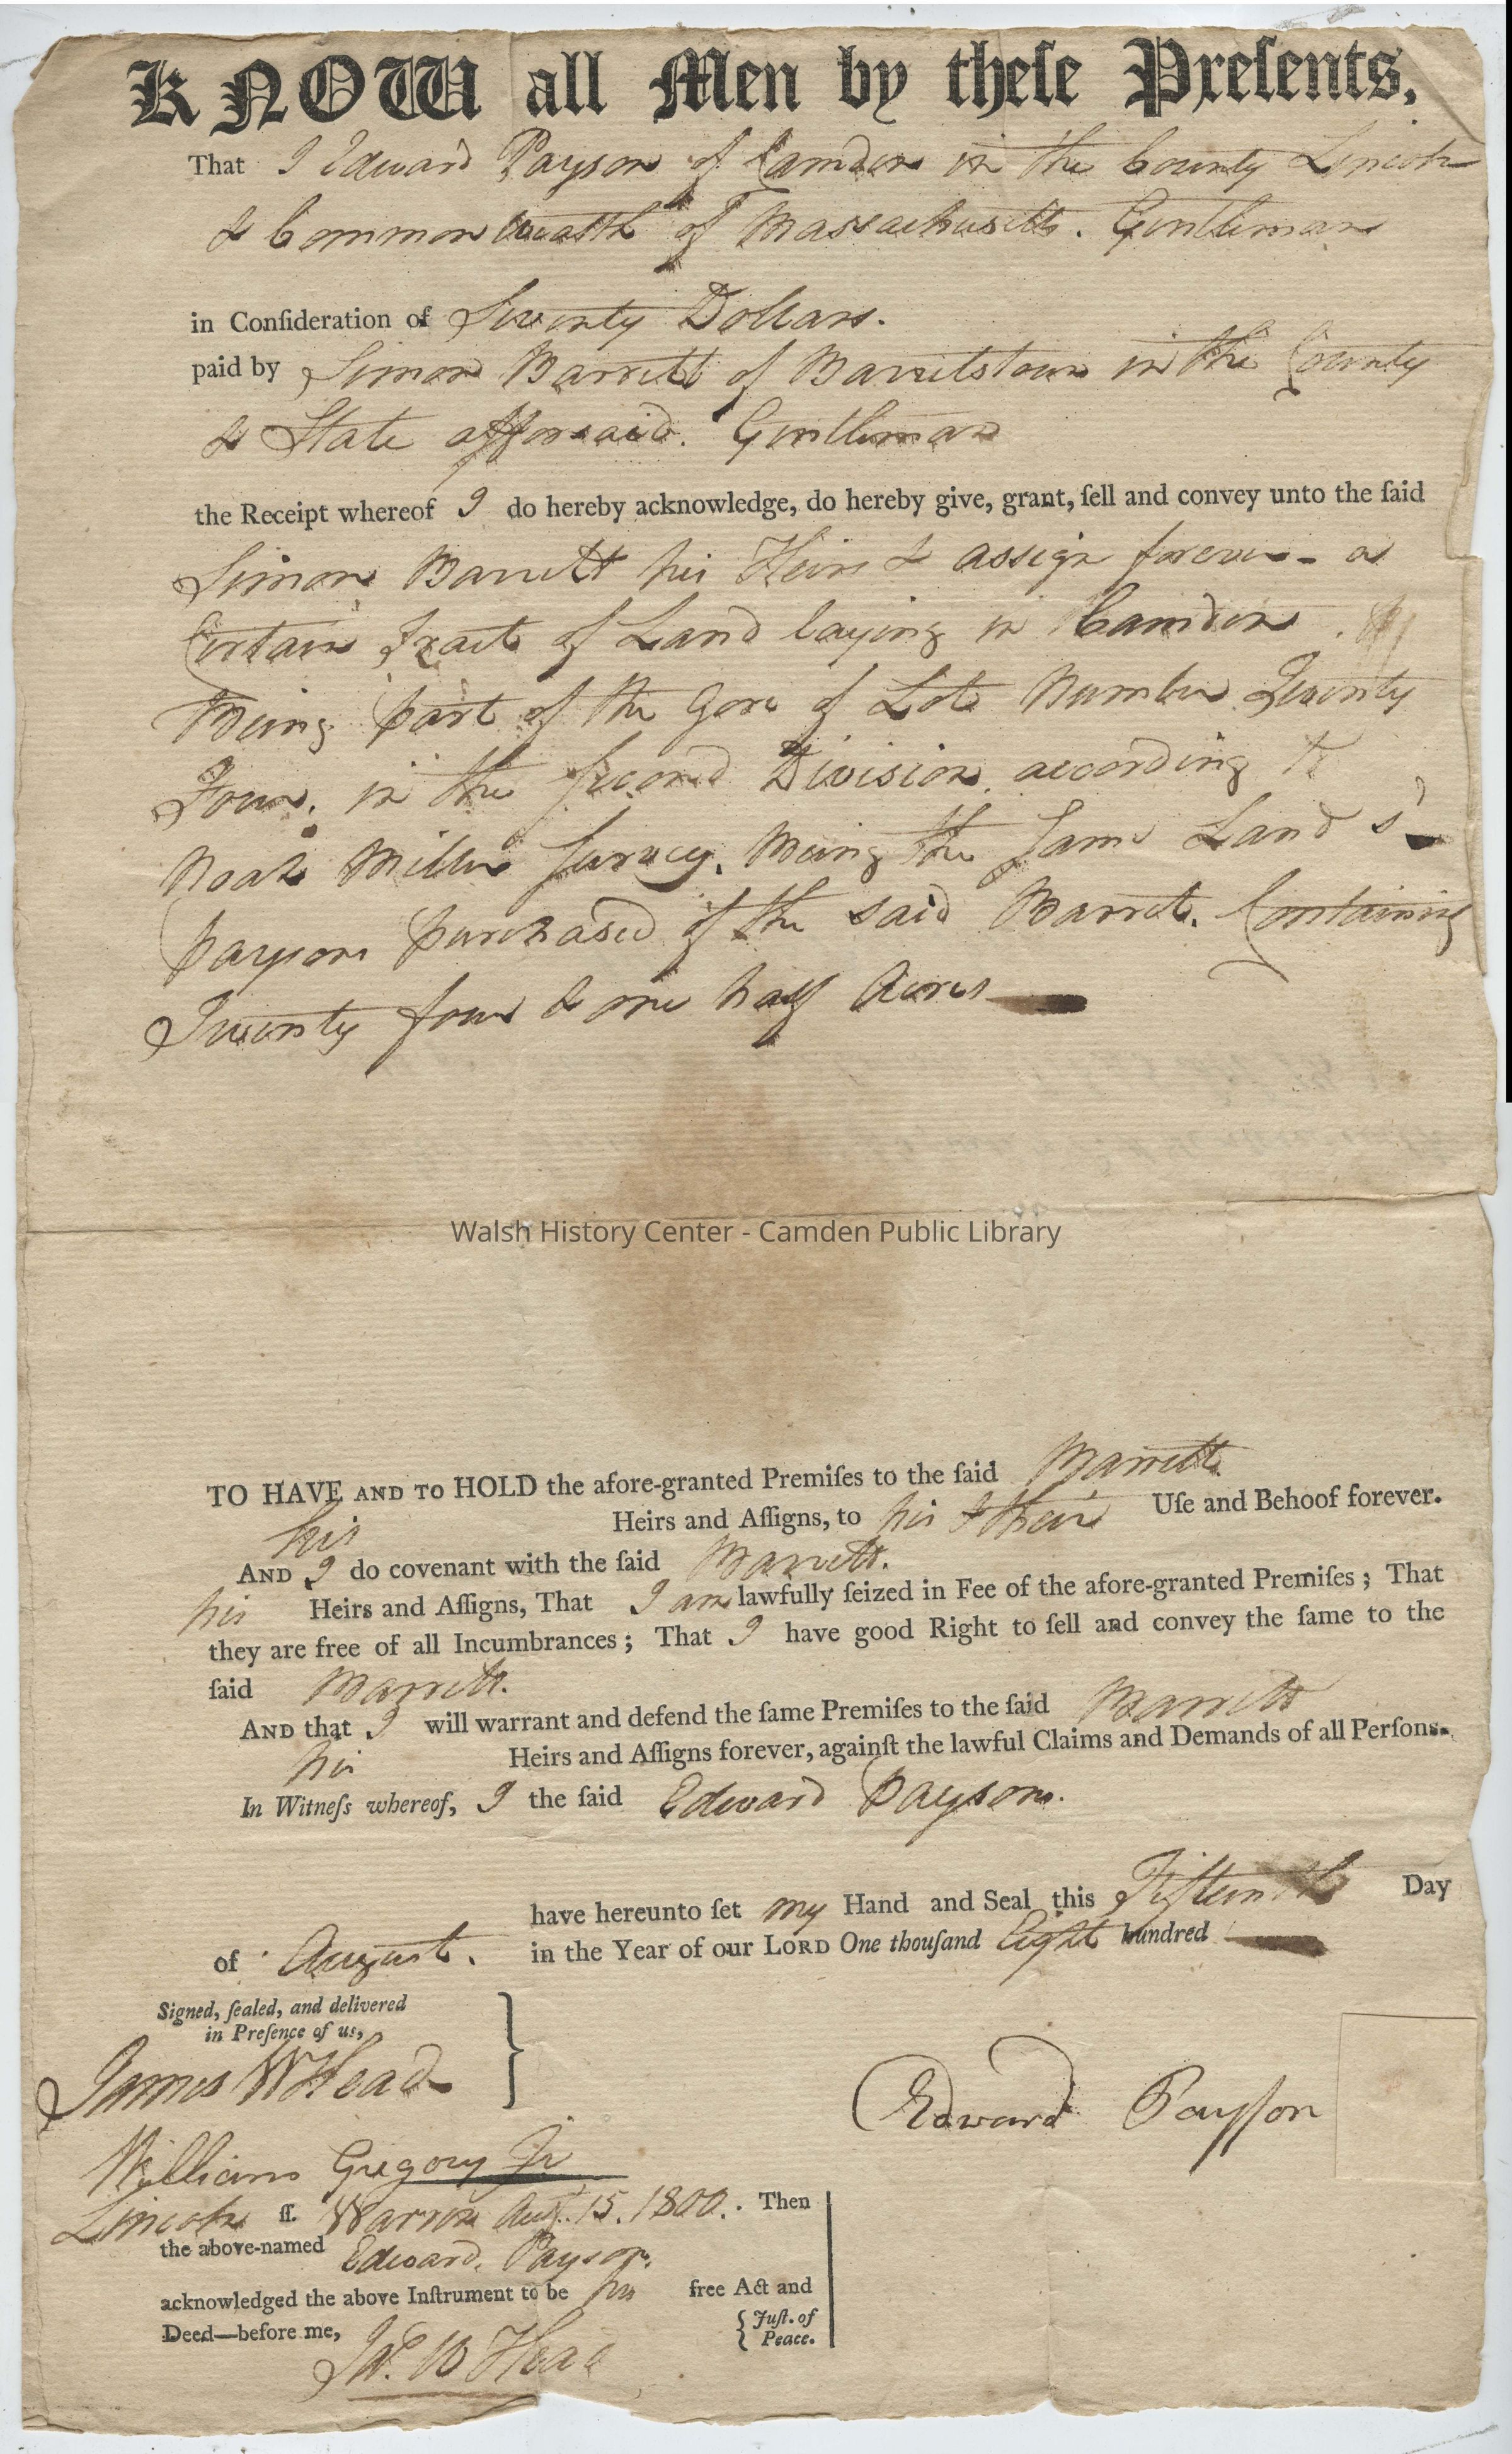 KNOW all Men by theſe Preſents,
That I Edward Payson of Camden in the County Lincoln
& Commonwealth of Massachusetts. Gentleman
in Conſideration of Seventy Dollars.
paid by Simon Barrett of Barretstown in the County
& State afforsaid. Gentleman
the Receipt whereof I do hereby acknowledge, do hereby give, grant, ſell and convey unto the ſaid
Simon Barrett his Heirs & assign forever - a
Certain Tract of Land laying in Camden.
Being part of the Gore of Lot Number Twenty
Four. in the Second Division according to
Noah Miller Survey. Being the Same Land sd
payson purchased of the said Barret. Containing
Twenty four & one half Acres
Walsh History Center - Camden Public Library
TO HAVE AND TO HOLD the afore-granted Premiſes to the ſaid Barrett
his Heirs and Aſſigns, to his & their Uſe and Behoof forever.
AND I do covenant with the ſaid Barrett.
his Heirs and Aſſigns, That I am lawfully ſeized in Fee of the afore-granted Premiſes; That
they are free of all Incumbrances; That I have good Right to ſell and convey the ſame to the
ſaid Barrett.
AND that I will warrant and defend the ſame Premiſes to the ſaid Barrett
his Heirs and Aſſigns forever, againſt the lawful Claims and Demands of all Perſons.
In Witneſs whereof, I the ſaid Edward Payson.
have hereunto ſet my Hand and Seal this Fifteenth Day
of August. in the Year of our LORD One thouſand Eight hundred
Signed, ſealed, and delivered
in Preſence of us,
James W Head
Edward Payſon
William Gregory Jr
Lincoln ſſ. Warren Augt. 15. 1800. Then
the above-named Edward Payson.
acknowledged the above Inſtrument to be his free Act and
Deed—before me, Js. W Head { Juſt. of
Peace.